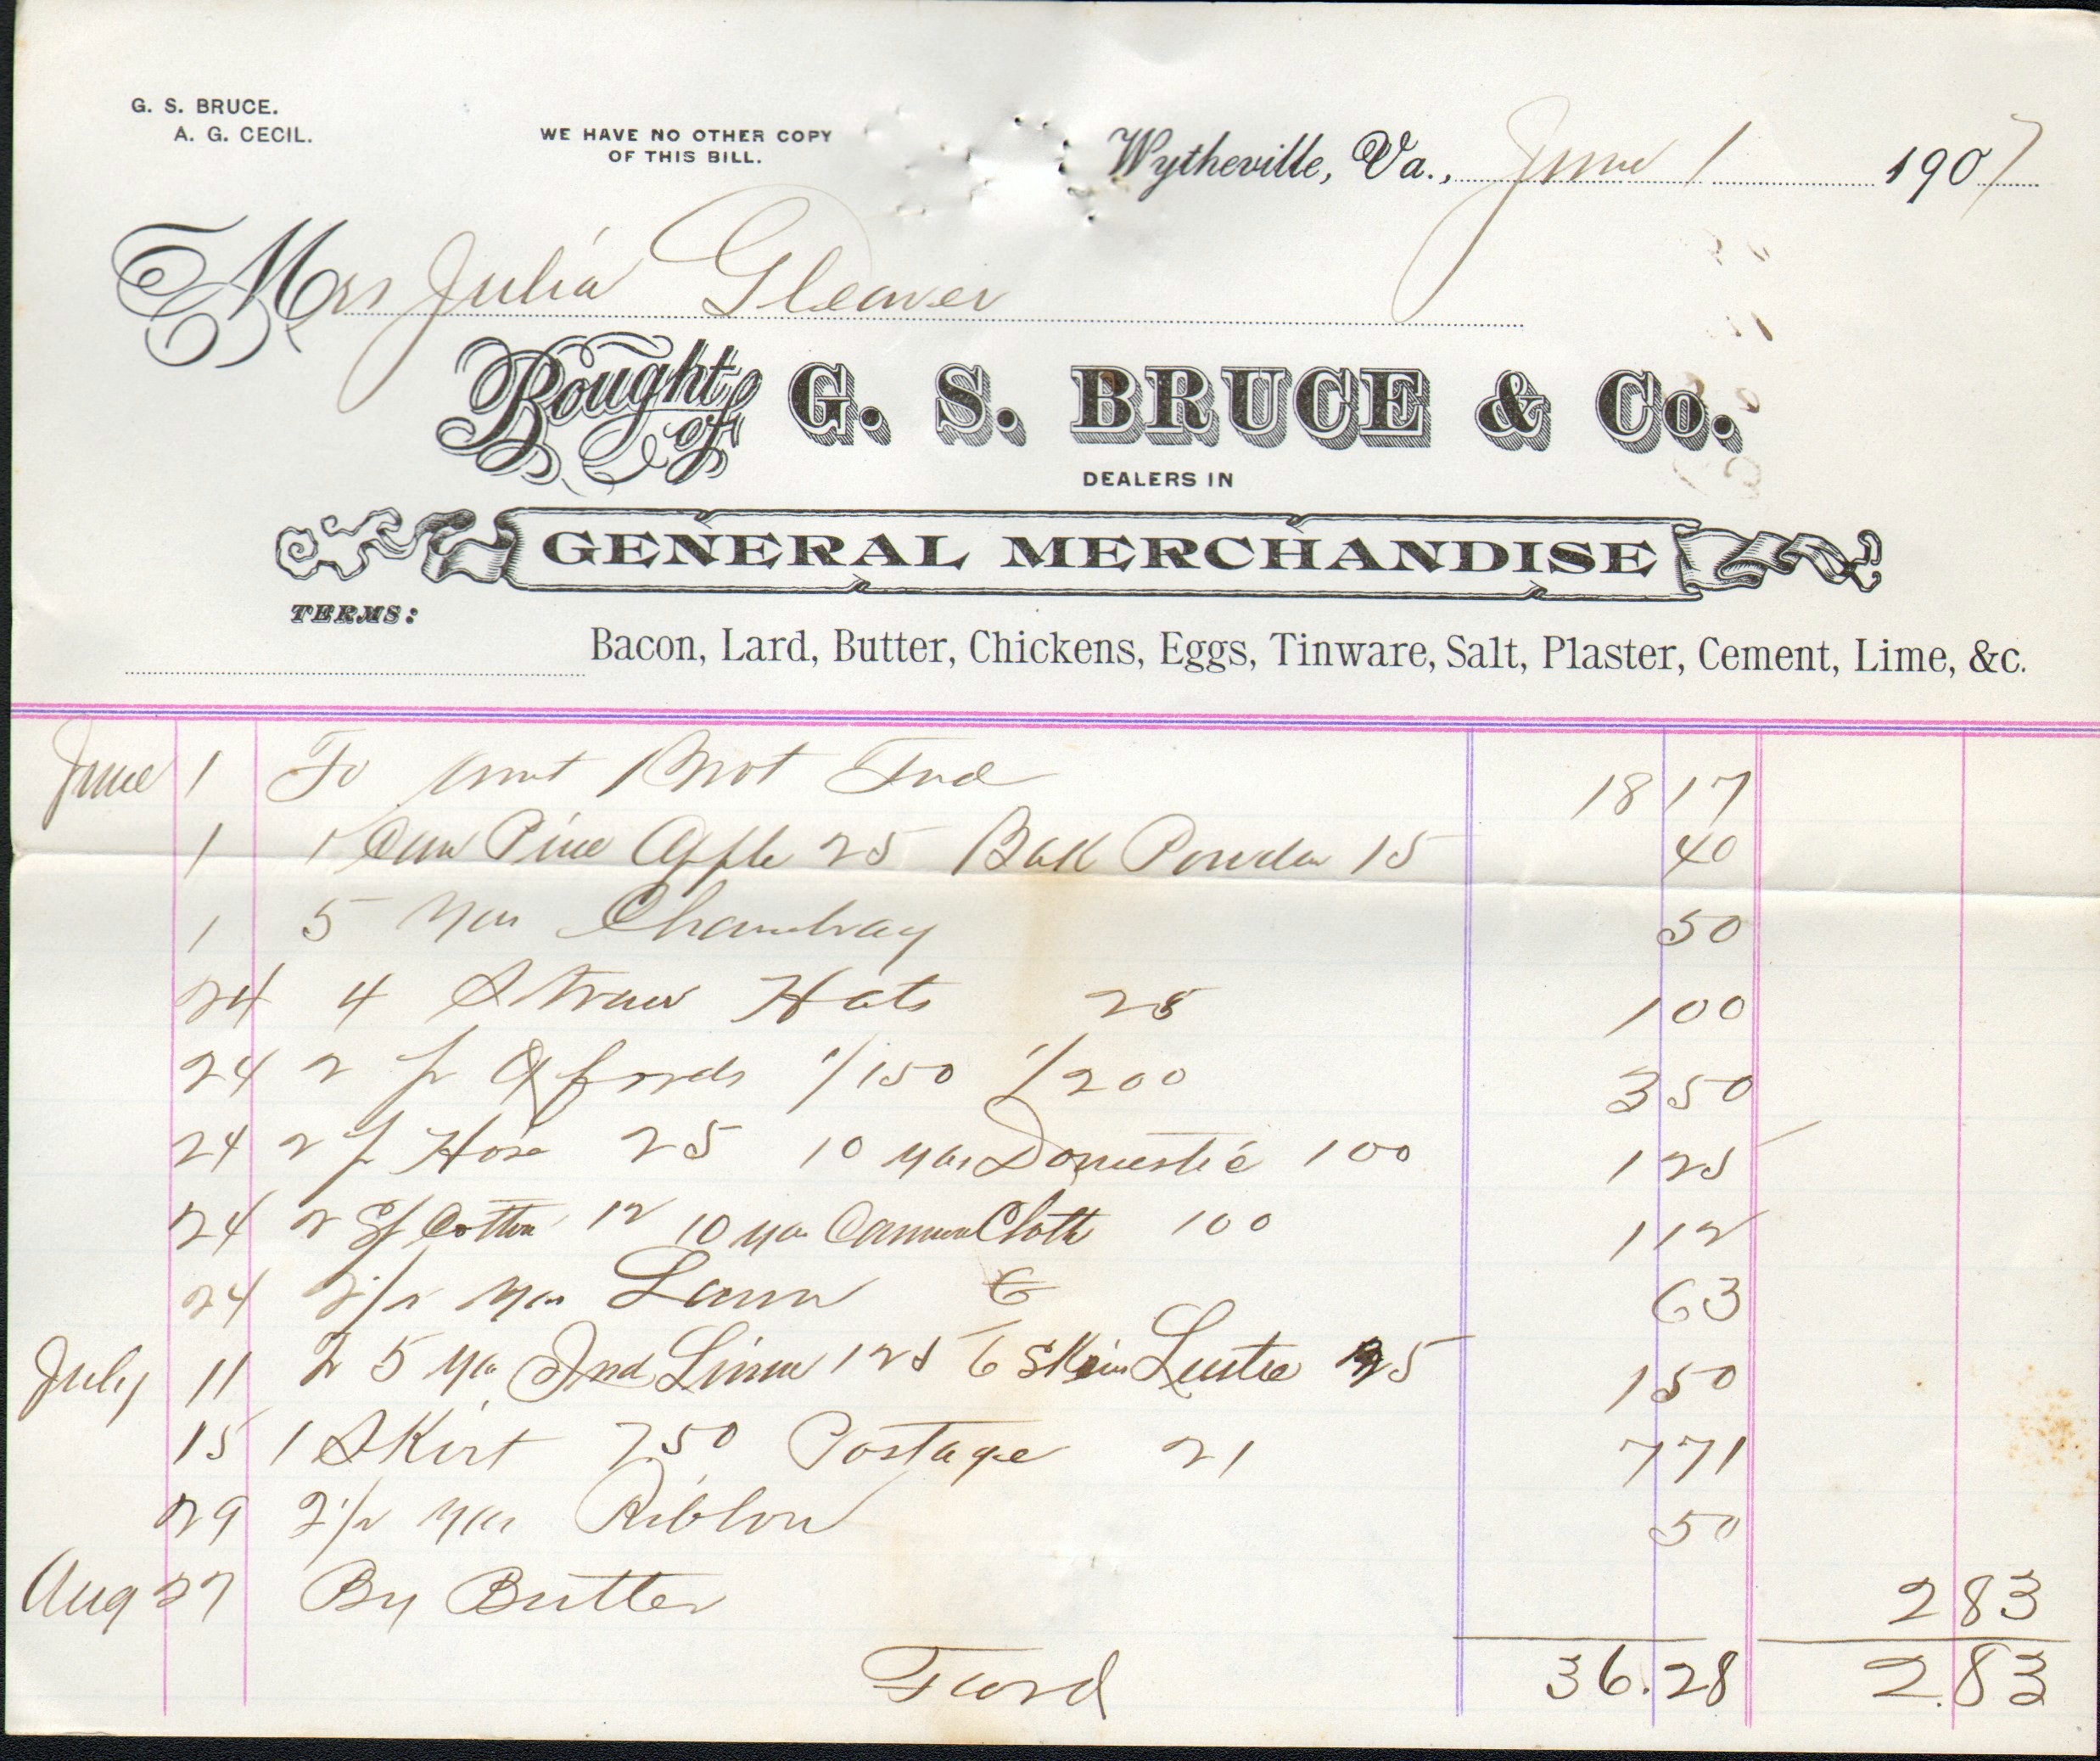 G. S. BRUCE.
A. G. CECIL.
WE HAVE NO OTHER COPY
OF THIS BILL.
Wytheville, Va., June 1 1907
Mrs Julia Gleaver
Bought of G. S. BRUCE & Co.
DEALERS IN
GENERAL MERCHANDISE
TERMS:
Bacon, Lard, Butter, Chickens, Eggs, Tinware, Salt, Plaster, Cement, Lime, &c.
June 1 To Amt Brot Fwd 18 17
1 1 Can Pine Apple 25 Bak Powder 15 40
1 5 yds Chambray 50
24 4 Straw Hats 25 1 00
24 2 pr Oxfords 1/150 1/200 3 50
24 2 pr Hose 25 10 yds Domestic 100 1 25
24 2 Sp Cotton 12 10 yds Cannon Cloth 100 1 12
24 2 1/2 yds Lawn 63
July 11 5 yds Ind Linen 125 6 Skein Lustre 25 1 50
15 1 Skirt 7.50 Postage 21 7 71
29 2 1/2 yds Ribbon 50
Aug 27 By Butter 2 83
Fwrd 36.28 2.83